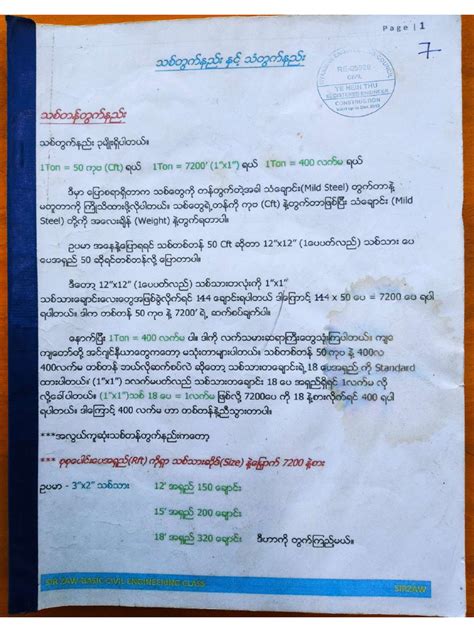 Page | 1
7
သစ်တွက်နည်း နှင့် သံတွက်နည်း
RE-05929
CIVIL
YE HEIN THU
REGISTERED ENGINEER
CONSTRUCTION
သစ်တန်တွက်နည်း
သစ်တွက်နည်း ၃မျိုးရှိပါတယ်။
1Ton = 50 ကုဗ (Cft) ရယ် 1Ton = 7200' (1"x1") ရယ် 1Ton = 400 လက်မ ရယ်
ဒီမှာ ပြောစရာရှိတာက သစ်တွေကို တန်တွက်တဲ့အခါ သံချောင်း(Mild Steel) တွက်တာနဲ့
မတူတာကို ကြိုသိထားဖို့လိုပါတယ်။ သစ်တွေရဲ့တန်ကို ကုဗ (Cft) နဲ့တွက်တာဖြစ်ပြီး သံချောင်း (Mild
Steel) တို့ကို အလေးချိန် (Weight) နဲ့တွက်ရတာပါ။
ဥပမာ အနေနဲ့ပြောရရင် သစ်တစ်တန် 50 Cft ဆိုတာ 12"x12" (1ပေပတ်လည်) သစ်သား ပေ
ပေအရှည် 50 ဆိုရင်တစ်တန်လို့ ပြောတာပါ။
ဒီတော့ 12"x12" (1ပေပတ်လည်) သစ်သားတလုံးကို 1"x1"
သစ်သားချောင်းလေးတွေအဖြစ်ခွဲလိုက်ရင် 144 ချောင်းရပါတယ် ဒါကြောင့် 144 x 50 ပေ = 7200 ပေ ရပါ
ရပါတယ်။ ဒါက တစ်တန် 50 ကုဗ နဲ့ 7200' ရဲ့ ဆက်စပ်ချက်ပါ။
နောက်ပြီး 1Ton = 400 လက်မ ပါ။ ဒါကို လက်သမားဆရာကြီးတွေသုံးကြပါတယ်။ ကျ
ကျတော်တို့ အင်ဂျင်နီယာတွေကတော့ မသုံးတာများပါတယ်။ သစ်တစ်တန် 50 ကုဗ နဲ့ 400လ
400လက်မ တစ်တန် ဘယ်လိုဆက်စပ်လဲ ဆိုတော့ သစ်သားတချောင်းရဲ့ 18 ပေအရှည် ကို Standard
ထားပါတယ်။ (1"x1") ၁လက်မပတ်လည် သစ်သားတချောင်း 18 ပေ အရှည်ရှိရင် 1လက်မ လို
လို့ခေါ်ပါတယ်။ (1"x1")သစ် 18 ပေ = 1လက်မ ဖြစ်လို့ 7200ပေ ကို 18 နဲ့စားလိုက်ရင် 400 ရပါ
ရပါတယ်။ ဒါကြောင့် 400 လက်မ ဟာ တစ်တန်နဲ့ညီသွားတာပါ။
***အလွယ်ကူဆုံးသစ်တန်တွက်နည်းကတော့
* စုစုပေါင်းပေအရှည်(Rft) ကိုရှာ သစ်သားဆိုဒ်(Size) နဲ့မြှောက် 7200 နဲ့စား
ဥပမာ - 3"x2" သစ်သား 12' အရှည် 150 ချောင်း
15' အရှည် 200 ချောင်း
18' အရှည် 320 ချောင်း ဒီဟာကို တွက်ကြည့်မယ်။
SIR ZAW BASIC CIVIL ENGINEERING CLASS SIRZAW